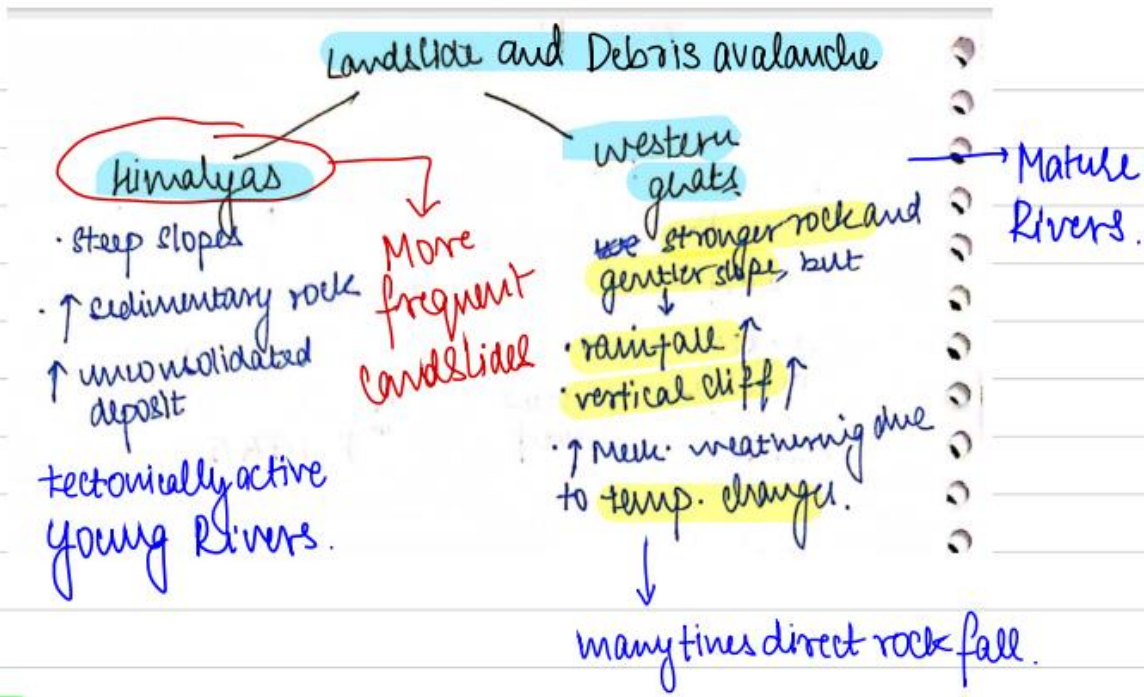 Landslide and Debris avalanche
Himalyas
• Steep slopes
• ↑ sedimentary rock
↑ unconsolidated
deposit
tectonically active
Young Rivers.
More
frequent
landslides
western
ghats
stronger rock and
gentler slope, but
↓
• rainfall ↑
• vertical cliff ↑
• ↑ Mech. weathering due
to temp. changes.
↓
many times direct rock fall.
→ Mature
Rivers.